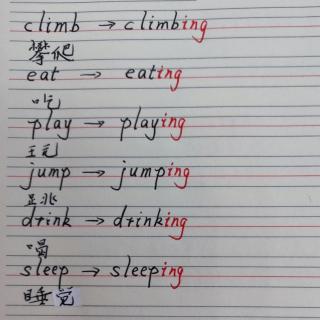 climb → climbing
攀爬
eat → eating
吃
play → playing
玩
jump → jumping
跳
drink → drinking
喝
sleep → sleeping
睡觉